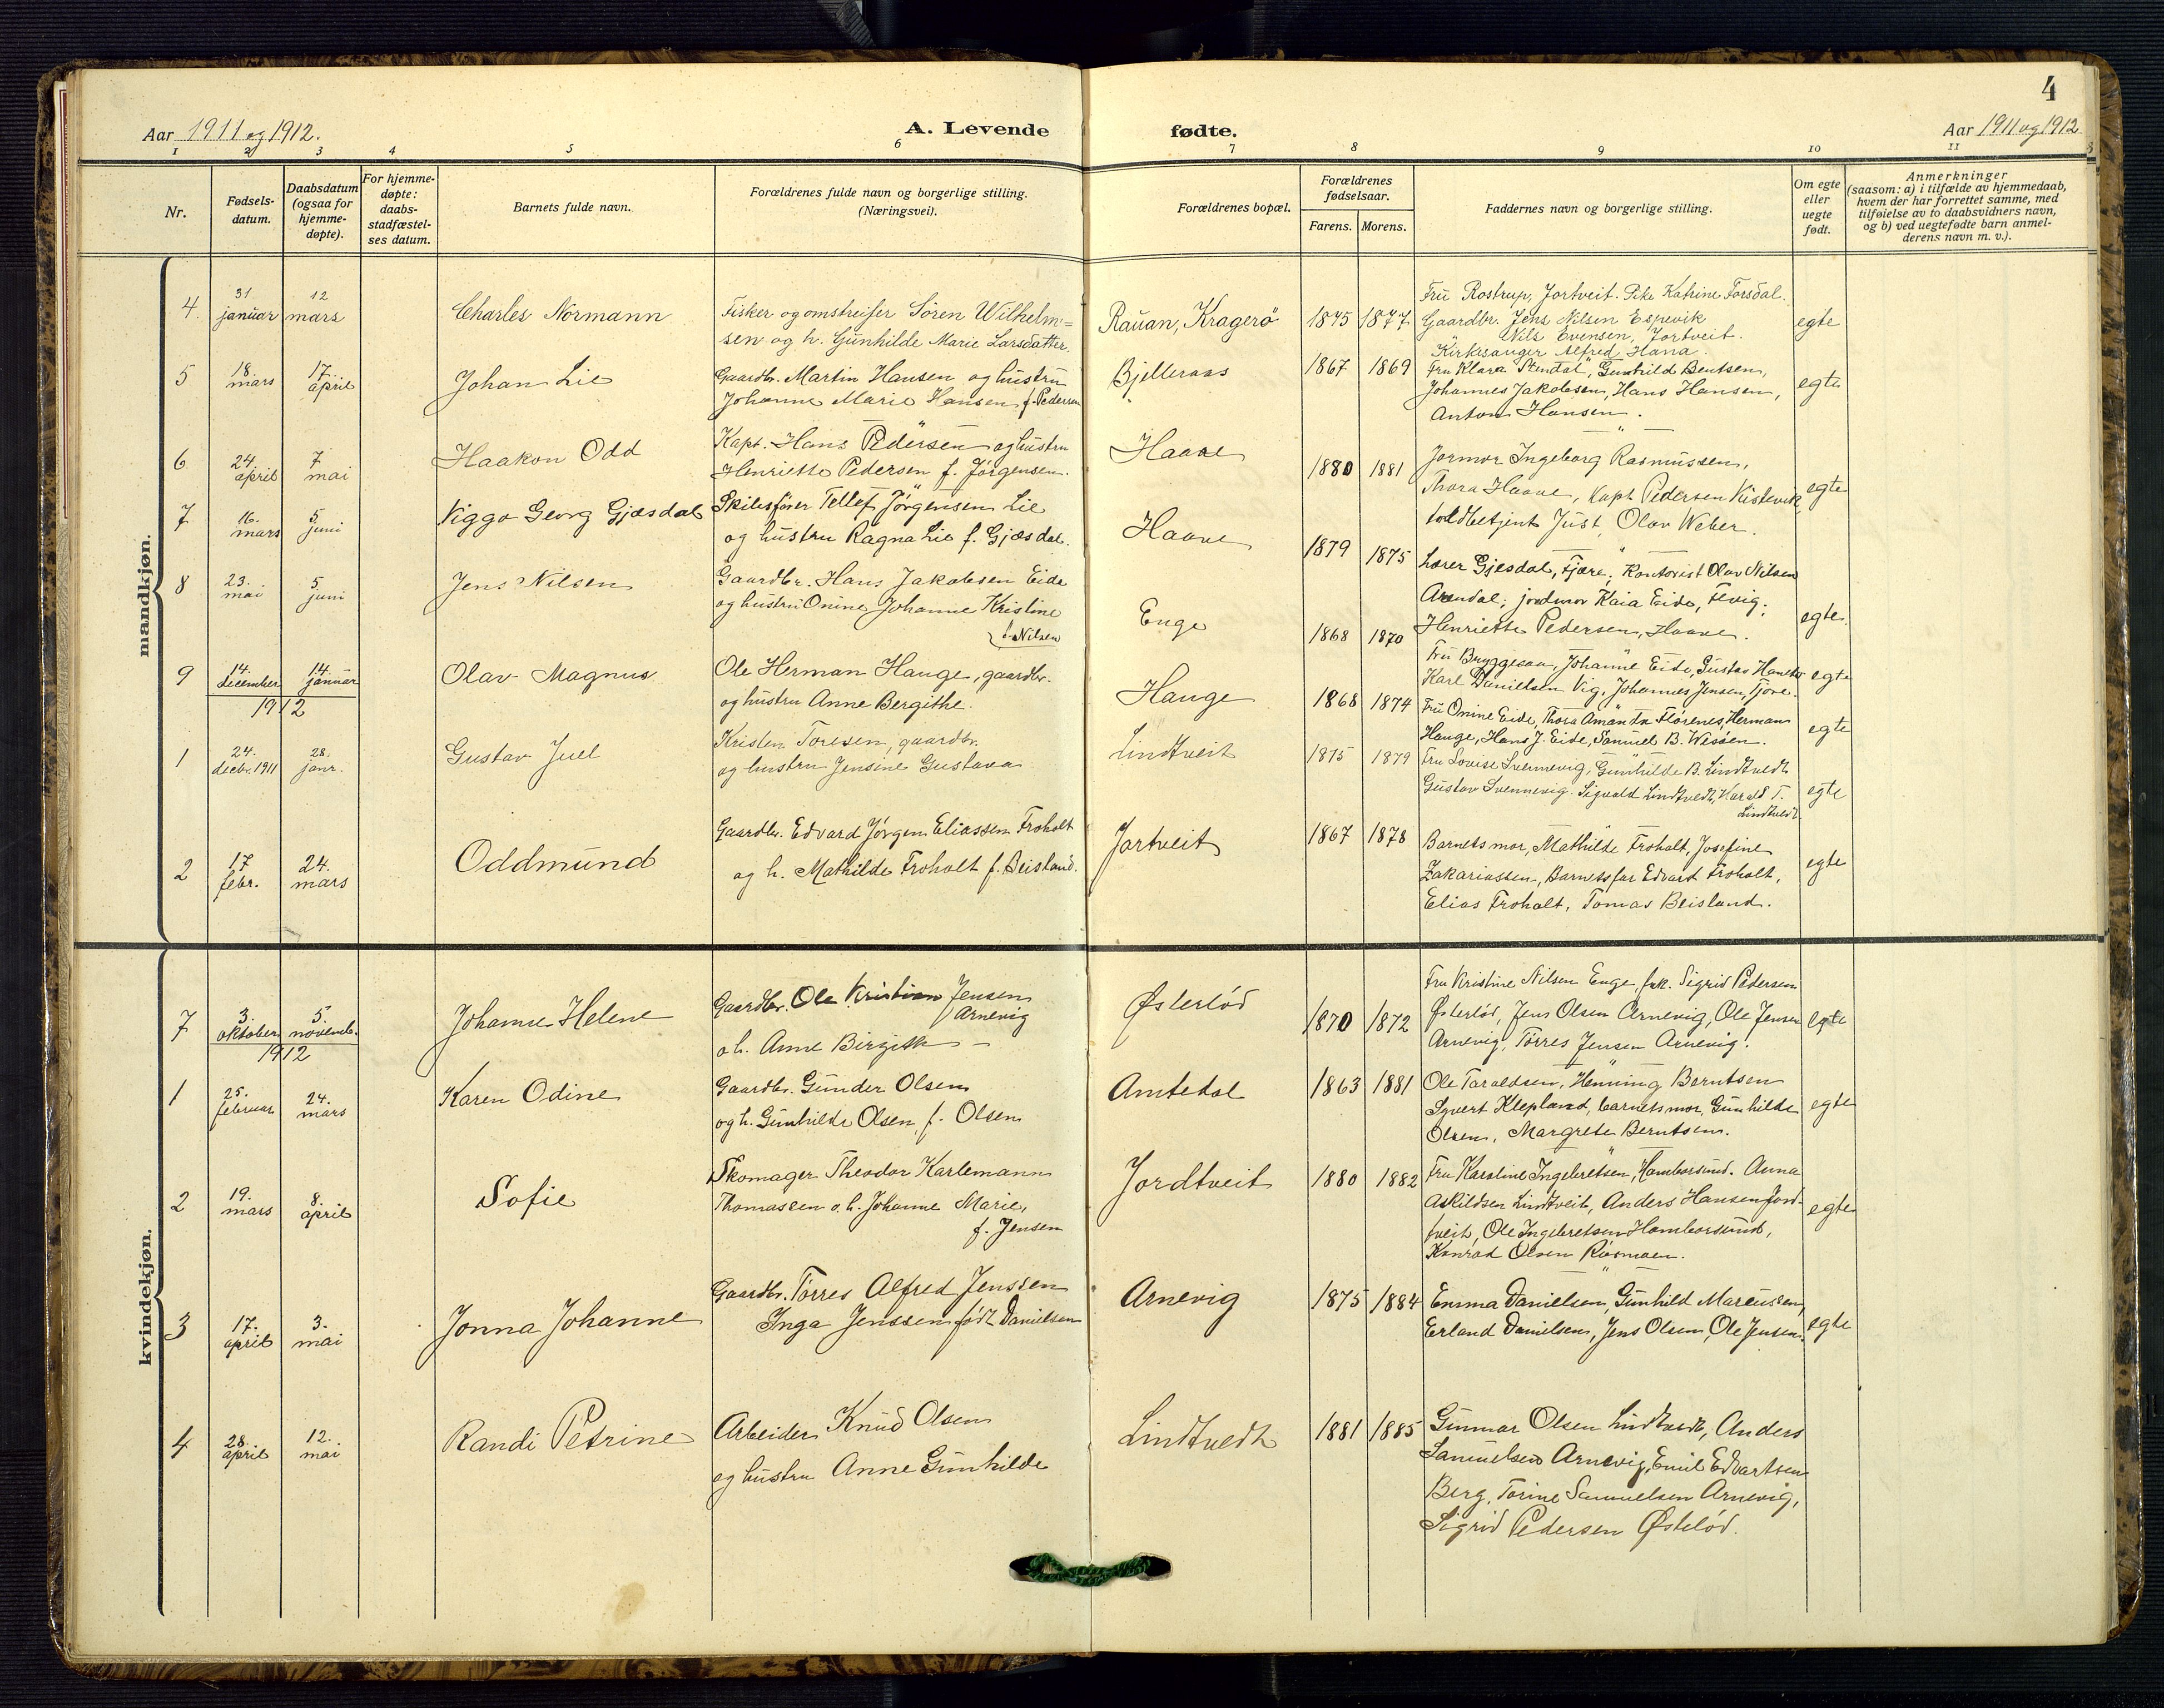 4
Aar 1911 og 1912.
A. Levende fødte.
Aar 1911 og 1912
1 2 3 4 5 6 7 8 9 10 11
Nr.
Fødsels-
datum.
Daabsdatum
(ogsaa for
hjemme-
døpte).
For hjemme-
døpte:
daabs-
stadfæstel-
ses datum.
Barnets fulde navn.
Forældrenes fulde navn og borgerlige stilling.
(Næringsvei).
Forældrenes bopæl.
Forældrenes
fødselsaar.
Farens. Morens.
Faddernes navn og borgerlige stilling.
Om egte
eller
uegte
født.
Anmerkninger
(saasom: a) i tilfælde av hjemmedaab,
hvem der har forrettet samme, med
tilføielse av to daabsvidners navn,
og b) ved uegtefødte barn anmel-
derens navn m. v.).
mandkjøn.
4.
31
januar
12
mars
Charles Normann
Fisker og omstreifer Søren Wilhelm=
sen og h. Gunhilde Marie Larsdatter.
Rauan, Kragerö
1875 1877
Fru Rostrup, Jortveit. Pike Katrine Forsdal.
Gaardbr. Jens Nilsen Espevik
" Nils Evensen, Jortveit.
Kirkesanger Alfred Hana.
egte
5
18.
mars
17.
april
Johan Lie
Gaardbr. Martin Hansen og hustru
Johanne Marie Hansen f. Pedersen
Bjelleraas
1867 1869
Fru Klara Stendal, Gunhild Bentsen,
Johannes Jakobsen, Hans Hansen,
Anton Hansen.
egte
6
24.
april
7
mai
Haakon Odd
Kapt. Hans Pedersen og hustru
Henriette Pedersen f. Jørgensen.
Haave
1880 1881
Jormor Ingeborg Rasmussen,
Thora Haave, Kapt. Pedersen Kistevik
toldbetjent Just, Olav Weber.
egte
7
16.
mars
5.
juni
Viggo Georg Gjæsdal
Skibsfører Tellef Jörgensen Lie
og hustru Ragna Lie f. Gjæsdal.
Haave
1879 1875
Lærer Gjesdal, Fjære; Kontorist Olav Nilsen
Arendal; jordmor Kaia Eide, Fevig;
Henriette Pedersen, Haave.
egte.
8
23.
mai
5.
juni
Jens Nilsen
Gaardbr. Hans Jakobsen Eide
og hustru Onine Johanne Kristine
f. Nilsen
Enge
1868 1870
Fru Bryggesaa, Johanne Eide, Gustav Hansen
Karl Danielsen Vig, Johannes Jensen, Fjære.
egte
9
14.
december
14.
januar
Olav Magnus
Ole Herman Hauge, gaardbr.
og hustru Anne Bergithe.
Hauge
1868 1874
Fru Onine Eide, Thora Amanda Flörenes, Herman
Hauge, Hans J. Eide, Samuel B. Wesöen.
egte
1912
1
24.
decbr. 1911
28.
janr.
Gustav Juel
Kristen Toresen, gaardbr.
og hustru Jensine Gustava
Lindtveit
1875 1879
Fru Lovise Svennevig, Gunhilde B. Lindtvedt
Gustav Svennevig. Sigvald Lindtvedt, Harald T.
Lindtvedt.
egte
2
17
febr.
24.
mars
Oddmund
Gaardbr. Edvard Jørgen Eliassen Froholt
og h. Mathilde Froholt f. Beisland.
Jortveit
1867 1878
Barnets mor, Mathilde Froholt, Josefine
Zakariassen, Barnets far Edvard Froholt,
Elias Froholt, Tomas Beisland.
egte
kvindekjøn.
7
3.
oktober
5.
novemb.
Johanne Helene
Gaardbr. Ole Kristian Jensen
Arnevig
o. h. Anne Birgith —
Østeröd
1870 1872
Fru Kristine Nilsen Enge, frk. Sigrid Pedersen
Østeröd, Jens Olsen Arnevig, Ole Jensen
Arnevig, Törres Jensen Arnevig.
egte
1912
1
25.
februar
24.
mars
Karen Odine
Gaardbr. Gunder Olsen
og h. Gunhilde Olsen, f. Olsen
Amtedal
1863 1881
Ole Taraldsen, Henning Berntsen
Syvert Klepland, barnets mor, Gunhilde
Olsen, Margrete Berntsen.
egte
2
19.
mars
8.
april
Sofie
Skomager Theodor Karlemann
Thomassen o. h. Johanne Marie,
f. Jensen
Jordtveit
1880 1882
Fru Karoline Ingebretsen, Homborsund. Anna
Askildsen Lindtveit, Anders Hansen Jord-
tveit, Ole Ingebretsen Homborsund,
Konrad Olsen
egte
3
17.
april
3.
mai
Jonna Johanne
Gaardbr. Törres Alfred Jenssen
Inga Jenssen født Danielsen
Arnevig
1875 1884
Emma Danielsen, Gunhild Marcussen,
Erland Danielsen, Jens Olsen, Ole Jensen.
egte
4
28.
april
12.
mai
Randi Petrine
Arbeider Knud Olsen
og hustru Anne Gunhilde
Lindtvedt
1881 1885
Gunnar Olsen Lindtvedt, Anders
Samuelsen Arnevig, Emil Edvartsen
Berg, Torine Samuelsen Arnevig,
Sigrid Pedersen Østeröd.